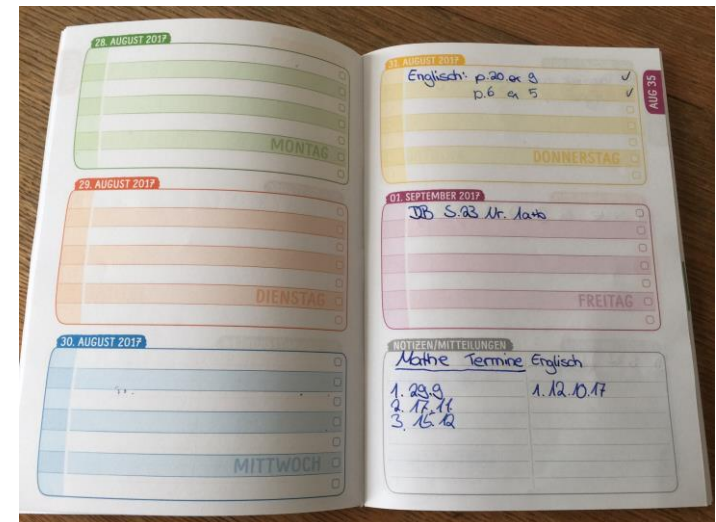 28. AUGUST 2017
MONTAG
29. AUGUST 2017
DIENSTAG
30. AUGUST 2017
MITTWOCH
31. AUGUST 2017
Englisch: p.20 ex 9 ✓
p.6 ex 5 ✓
DONNERSTAG
AUG 35
01. SEPTEMBER 2017
DB S.23 Nr. 1a+b
FREITAG
NOTIZEN/MITTEILUNGEN
Mathe Termine Englisch
1. 29.9 1. 12.10.17
2. 17.11.
3. 15.12